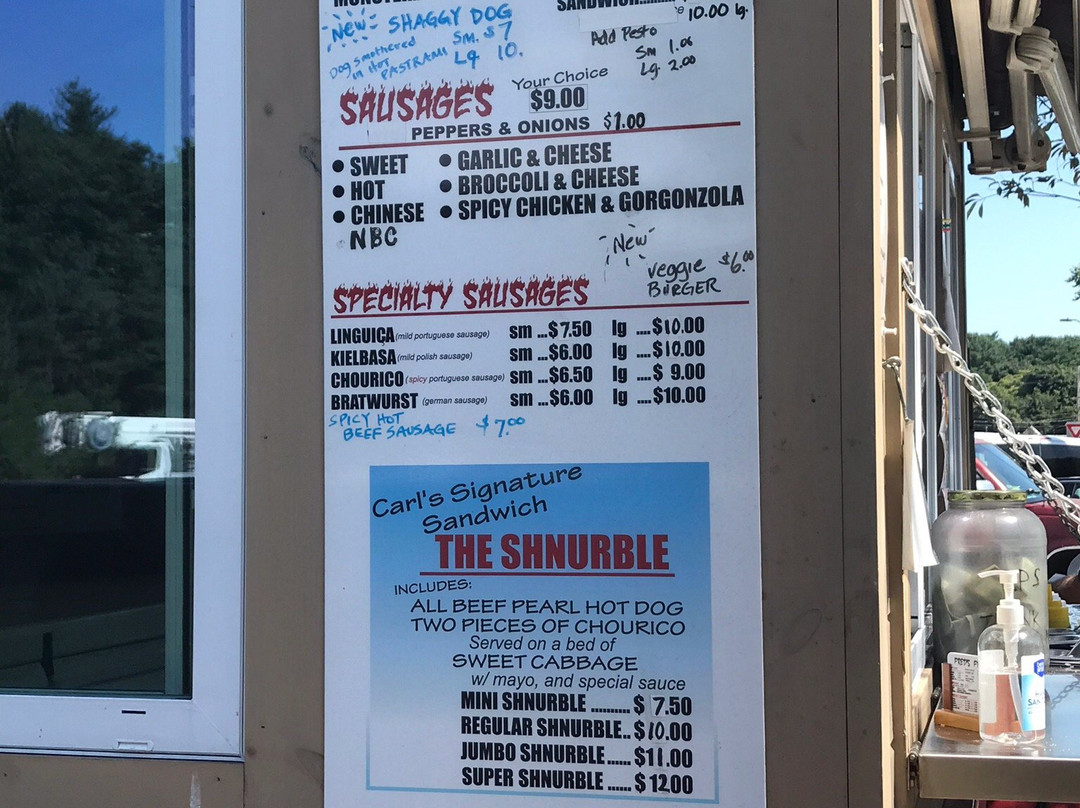 New SHAGGY DOG
Dog smothered
in Hot
PASTRAMI
Sm. $7
Lg 10.
10.00 lg.
Add Pesto
Sm 1.00
Lg. 2.00
SAUSAGES Your Choice
$9.00
PEPPERS & ONIONS $1.00
• SWEET
• HOT
• CHINESE
NBC
• GARLIC & CHEESE
• BROCCOLI & CHEESE
• SPICY CHICKEN & GORGONZOLA
New
Veggie $6.00
BURGER
SPECIALTY SAUSAGES
LINGUIÇA (mild portuguese sausage) sm ...$7.50 lg ....$10.00
KIELBASA (mild polish sausage) sm ...$6.00 lg ....$10.00
CHOURICO (spicy portuguese sausage) sm ...$6.50 lg ....$ 9.00
BRATWURST (german sausage) sm ...$6.00 lg ....$10.00
SPICY HOT
BEEF SAUSAGE $7.00
Carl's Signature
Sandwich
THE SHNURBLE
INCLUDES:
ALL BEEF PEARL HOT DOG
TWO PIECES OF CHOURICO
Served on a bed of
SWEET CABBAGE
w/ mayo, and special sauce
MINI SHNURBLE .......... $ 7.50
REGULAR SHNURBLE.. $10.00
JUMBO SHNURBLE ...... $11.00
SUPER SHNURBLE ...... $ 12.00